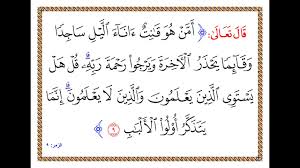 قَالَ تَعَالَى: ﴿ أَمَّنْ هُوَ قَٰنِتٌ ءَانَآءَ ٱلَّيْلِ سَاجِدًا
وَقَآئِمًا يَحْذَرُ ٱلْءَاخِرَةَ وَيَرْجُوا۟ رَحْمَةَ رَبِّهِۦ ۗ قُلْ هَلْ
يَسْتَوِى ٱلَّذِينَ يَعْلَمُونَ وَٱلَّذِينَ لَا يَعْلَمُونَ ۗ إِنَّمَا
يَتَذَكَّرُ أُو۟لُوا۟ ٱلْأَلْبَٰبِ ٩ ﴾
الزمر: ٩